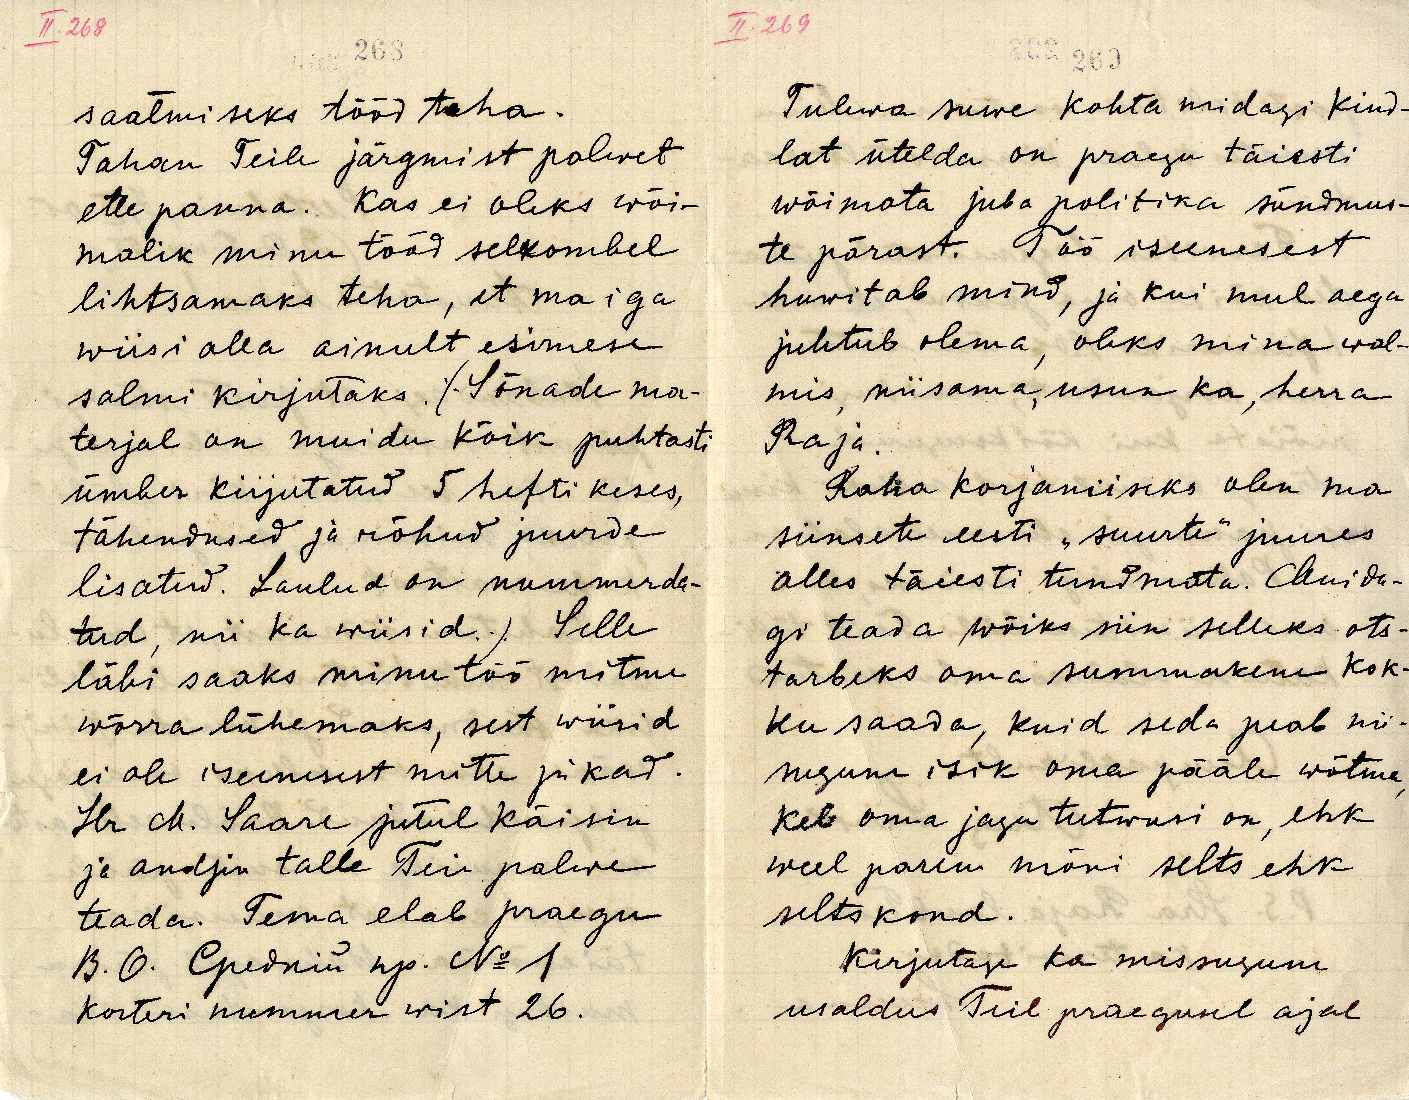 II. 268
268
saatmiseks tööd teha.
Tahan Teile järgmist palwet
ette panna. Kas ei oleks wõi-
malik minu tööd selkombel
lihtsamaks teha, et ma iga
wiisi alla ainult esimese
salmi kirjutaks. (Sõnade ma-
terjal on muidu kõik puhtasti
ümber kirjutatud 5 hefti keses,
tähendused ja rõhud juurde
lisatud. Laulud on nummerda-
tud, nii ka wiisid.) Selle
läbi saaks minu töö mitme
wõrra lühemaks, sest wiisid
ei ole iseenesest mitte pikad.
Hr M. Saare jutul käisin
ja andsin talle Teie palwe
teada. Tema elab praegu
В. О. Средній пр. № 1
korteri nummer wist 26.
II. 269
269
Tulewa suwe kohta midagi kind-
lat ütelda on praegu täiesti
wõimata juba politika sündmus-
te pärast. Töö iseenesest
huwitab mind, ja kui mul aega
juhtub olema, oleks mina wal-
mis, niisama, usun ka, herra
Raja.
Raha korjamiseks olen ma
siinsete eesti „suurte“ juures
alles täiesti tundmata. Muidu-
gi teada wõiks siin selleks ots-
tarbeks oma summakene kok-
ku saada, kuid seda peab nii-
sugune isik oma pääle wõtma,
kel oma jagu tutwusi on, ehk
weel parem mõni selts ehk
seltskond.
Kirjutage ka missugune
usaldus Teil praegusel ajal